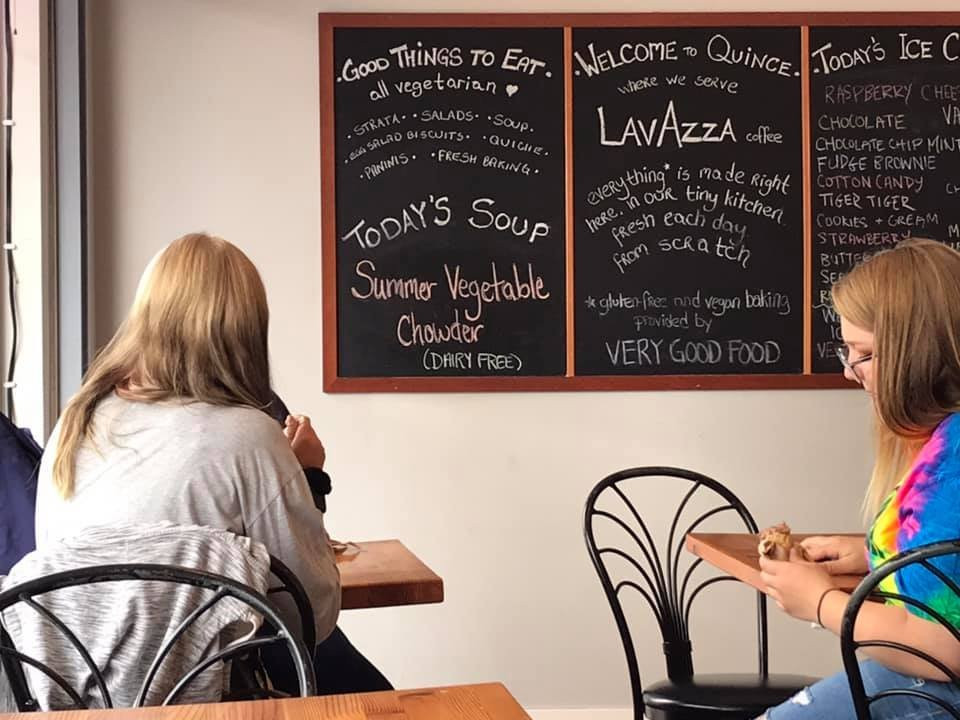 .GOOD THINGS TO EAT.
all vegetarian ♥
· STRATA · · SALADS · · SOUP .
· EGG SALAD BISCUITS · · QUICHE .
· PANINIS · · FRESH BAKING ·
TODAY'S SOUP
Summer Vegetable
Chowder
(DAIRY FREE)
.WELCOME TO QUINCE.
where we serve
LAVAZZA coffee
everything* is made right
here. in our tiny kitchen
fresh each day
from scratch
* gluten-free and vegan baking
provided by
VERY GOOD FOOD
.TODAY'S ICE C
RASPBERRY CHEE
CHOCOLATE VA
CHOCOLATE CHIP MINT
FUDGE BROWNIE
COTTON CANDY
TIGER TIGER
COOKIES + CREAM
STRAWBERRY